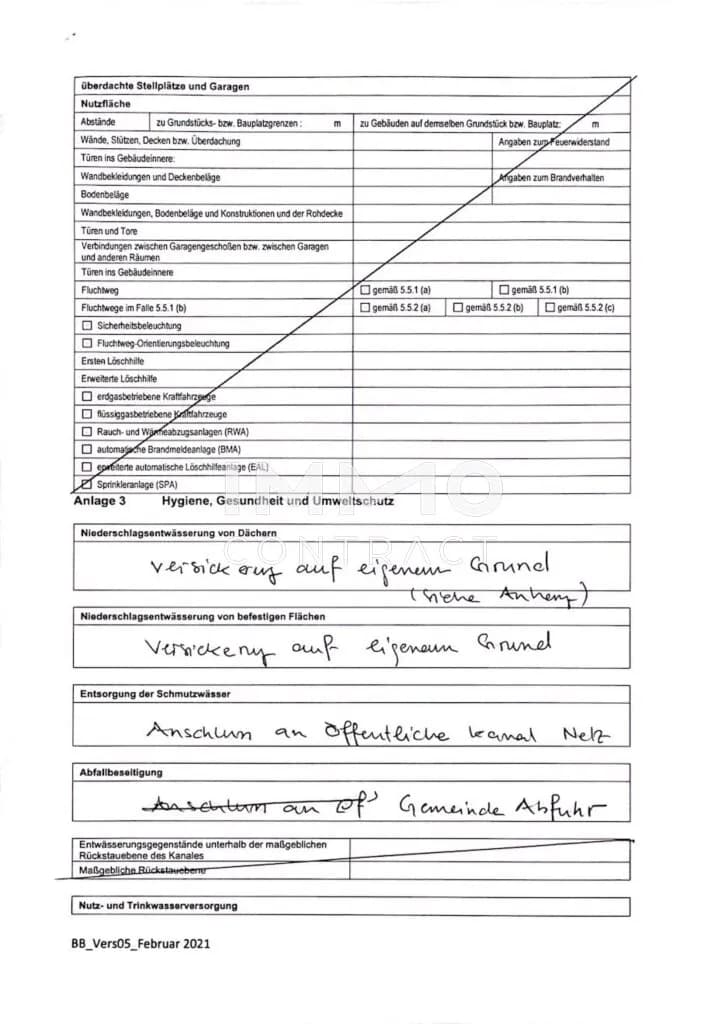 überdachte Stellplätze und Garagen
Nutzfläche
Abstände zu Grundstücks- bzw. Bauplatzgrenzen : m zu Gebäuden auf demselben Grundstück bzw. Bauplatz: m
Wände, Stützen, Decken bzw. Überdachung Angaben zum Feuerwiderstand
Türen ins Gebäudeinnere:
Wandbekleidungen und Deckenbeläge Angaben zum Brandverhalten
Bodenbeläge
Wandbekleidungen, Bodenbeläge und Konstruktionen und der Rohdecke
Türen und Tore
Verbindungen zwischen Garagengeschoßen bzw. zwischen Garagen
und anderen Räumen
Türen ins Gebäudeinnere
Fluchtweg ☐ gemäß 5.5.1 (a) ☐ gemäß 5.5.1 (b)
Fluchtwege im Falle 5.5.1 (b) ☐ gemäß 5.5.2 (a) ☐ gemäß 5.5.2 (b) ☐ gemäß 5.5.2 (c)
☐ Sicherheitsbeleuchtung
☐ Fluchtweg-Orientierungsbeleuchtung
Ersten Löschhilfe
Erweiterte Löschhilfe
☐ erdgasbetriebene Kraftfahrzeuge
☐ flüssiggasbetriebene Kraftfahrzeuge
☐ Rauch- und Wärmeabzugsanlagen (RWA)
☐ automatische Brandmeldeanlage (BMA)
☐ erweiterte automatische Löschhilfeanlage (EAL)
☐ Sprinkleranlage (SPA)
IMMO
CONTRACT
Anlage 3 Hygiene, Gesundheit und Umweltschutz
Niederschlagsentwässerung von Dächern
Versickerung auf eigenem Grund
(siehe Anhang)
Niederschlagsentwässerung von befestigen Flächen
Versickerung auf eigenem Grund
Entsorgung der Schmutzwässer
Anschluss an öffentliche Kanal Netz
Abfallbeseitigung
Anschluss an Öf' Gemeinde Abfuhr
Entwässerungsgegenstände unterhalb der maßgeblichen
Rückstauebene des Kanales
Maßgebliche Rückstauebene
Nutz- und Trinkwasserversorgung
BB_Vers05_Februar 2021